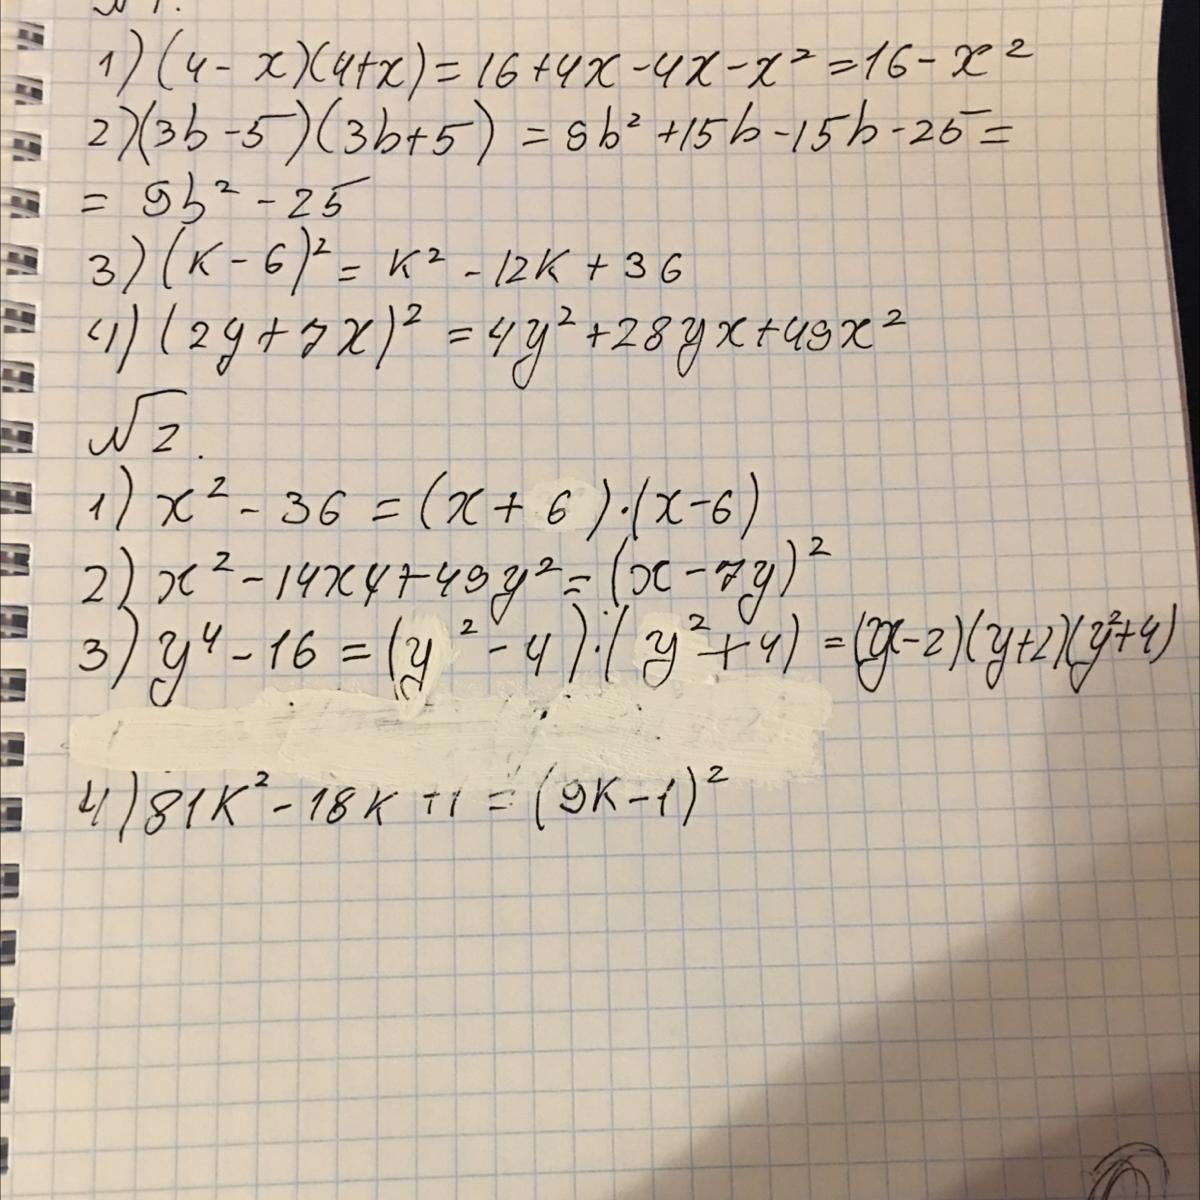 №1.
1) (4 - x)(4+x) = 16 + 4x - 4x - x² = 16 - x²
2) (3b - 5)(3b + 5) = 9b² + 15b - 15b - 25 =
= 9b² - 25
3) (к - 6)² = к² - 12к + 36
4) (2y + 7x)² = 4y² + 28yx + 49x²
№2.
1) x² - 36 = (x + 6)·(x - 6)
2) x² - 14xy + 49y² = (x - 7y)²
3) y⁴ - 16 = (y² - 4)·(y² + 4) = (y - 2)(y + 2)(y² + 4)
4) 81к² - 18к + 1 = (9к - 1)²